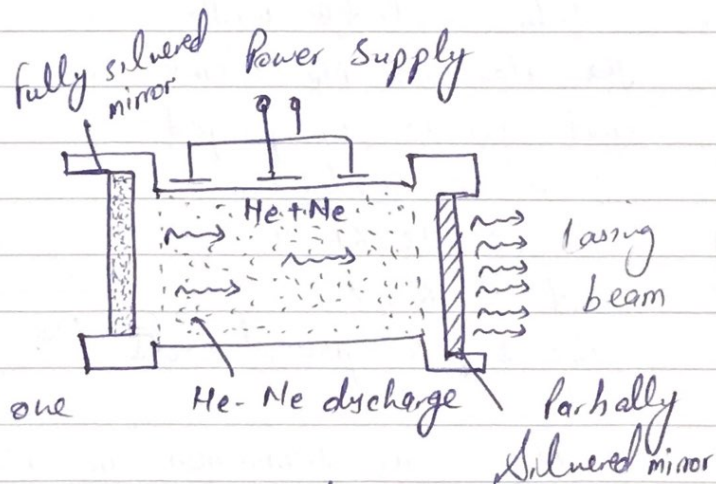 Fully silvered
mirror
Power Supply
He + Ne
lassing
beam
one
He-Ne dycharge
Parhally
Silvered mirror